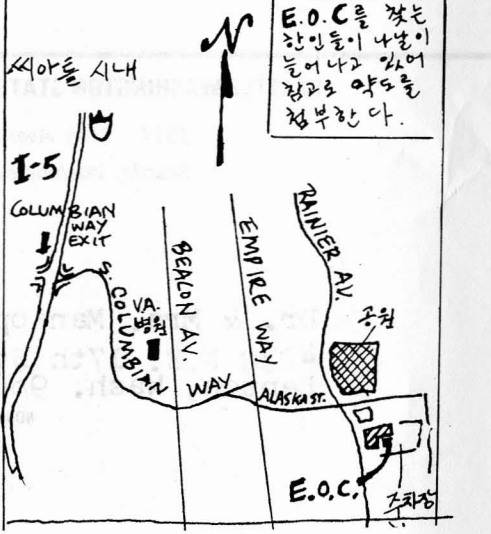 E.O.C를 찾는
한인들이 나날이
늘어나고 있어
참고로 약도를
첨부한다.
N
씨아틀 시내
I-5
COLUMBIAN
WAY
EXIT
S. COLUMBIAN
WAY
VA.
병원
BEACON AV.
EMPIRE WAY
RAINIER AV.
공원
ALASKA ST.
E.O.C.
주차장